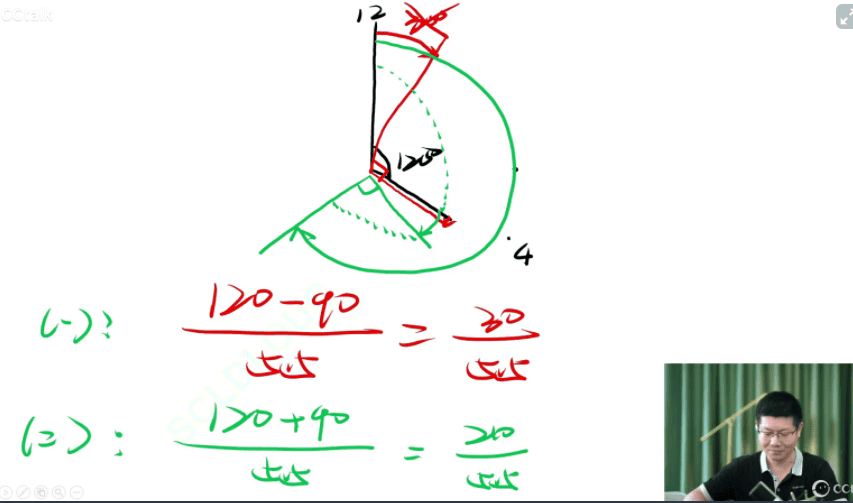 CCtalk
12
120°
4
(一): 120-90/5.5 = 30/5.5
(二): 120+90/5.5 = 210/5.5